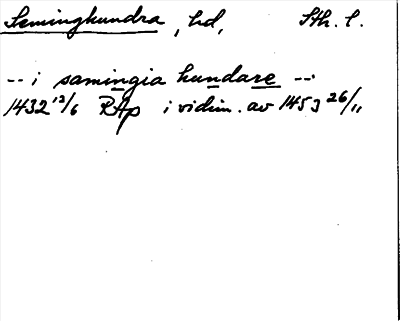 Semingkundra, hd, Sth. l.
-- i samingia hundare --
1432 12/6 RAp i vidim. av 1453 26/11